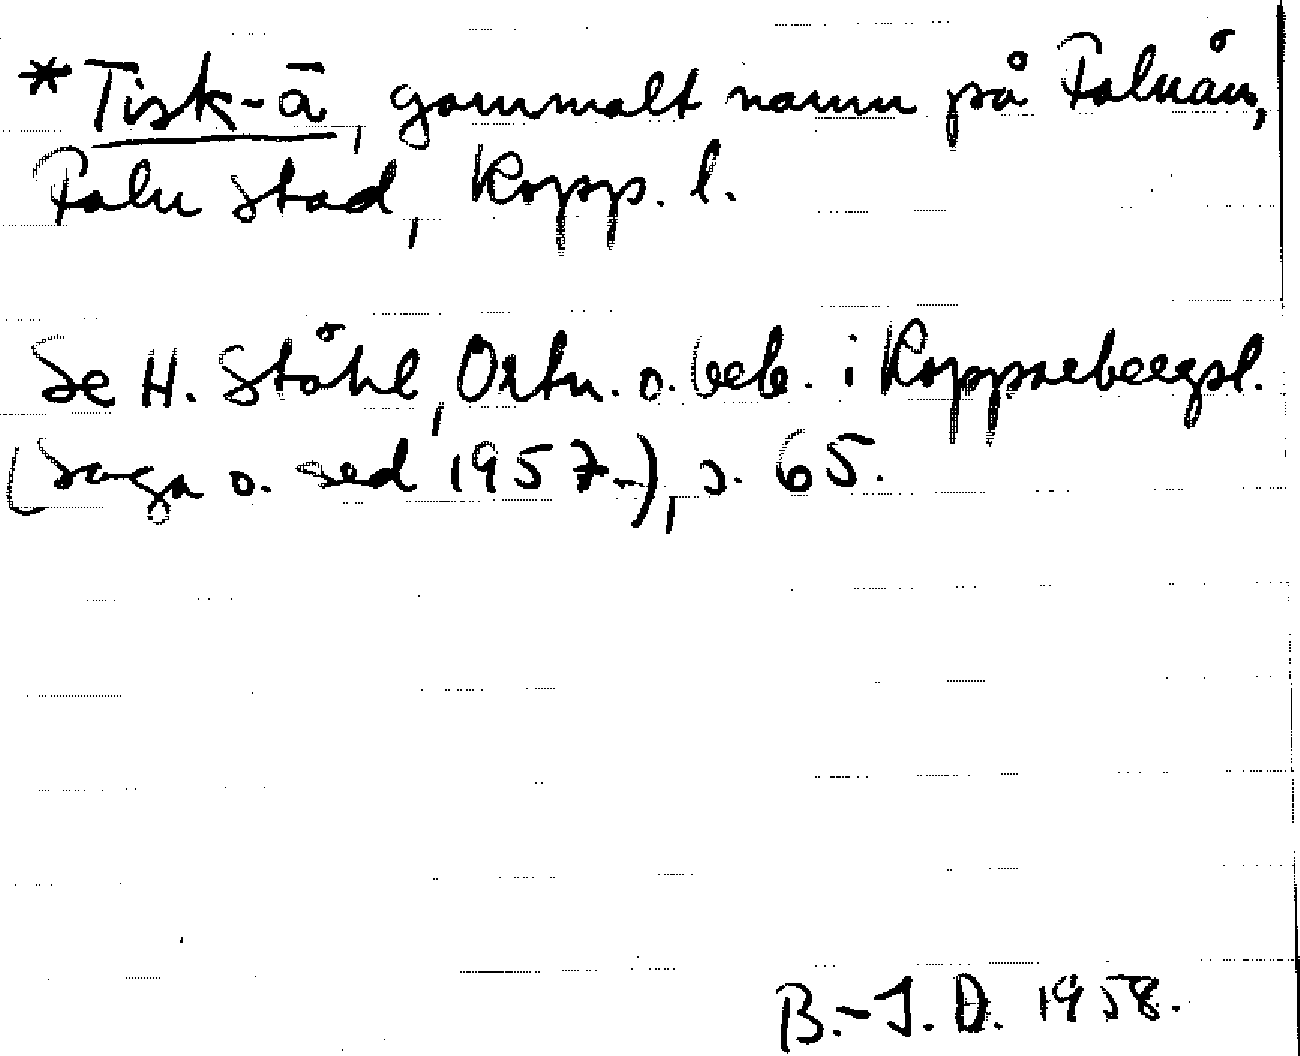 *Tisk-ā, gammalt namn på Faluån,
Falu stad, Kopp. l.
Se H. Ståhl, Ortn. o. beb. i Kopparbergsl.
(Saga o. sed 1957-), s. 65.
B.-J. D. 1958.